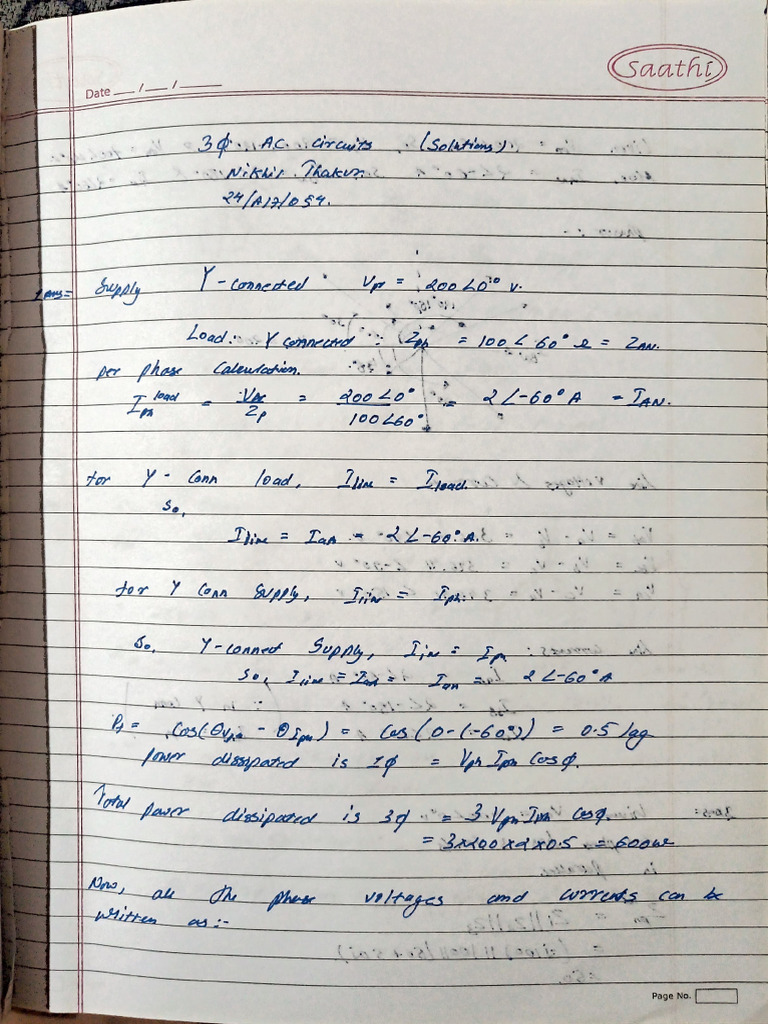 Saathi
Date __/__/____
3ϕ A.C. circuits (Solutions).
Nikhil Thakur
24/A17/054.
1 Ans= Supply Y-connected Vph = 200∠0° v.
Load: Y connected : Zph = 100∠60° Ω = ZAN.
per phase calculation.
Iph load = Vph/Zp = 200∠0°/100∠60° = 2∠-60° A = IAN.
for Y- Conn load, Iline = Iload.
So,
Iline = Ian = 2∠-60° A.
for Y Conn Supply, Iline = Iph.
So, Y-connect Supply, Iline = Iph
So, Iline = Ian = 2∠-60° A
Pf = cos(θVph - θIph) = cos(0-(-60°)) = 0.5 lag
power dissipated is 1ϕ = Vph Iph cosϕ.
Total power dissipated is 3ϕ = 3 Vph Iph cosϕ.
= 3×200×2×0.5 = 600w
Now, all the phase voltages and currents can be
written as:-
Page No.